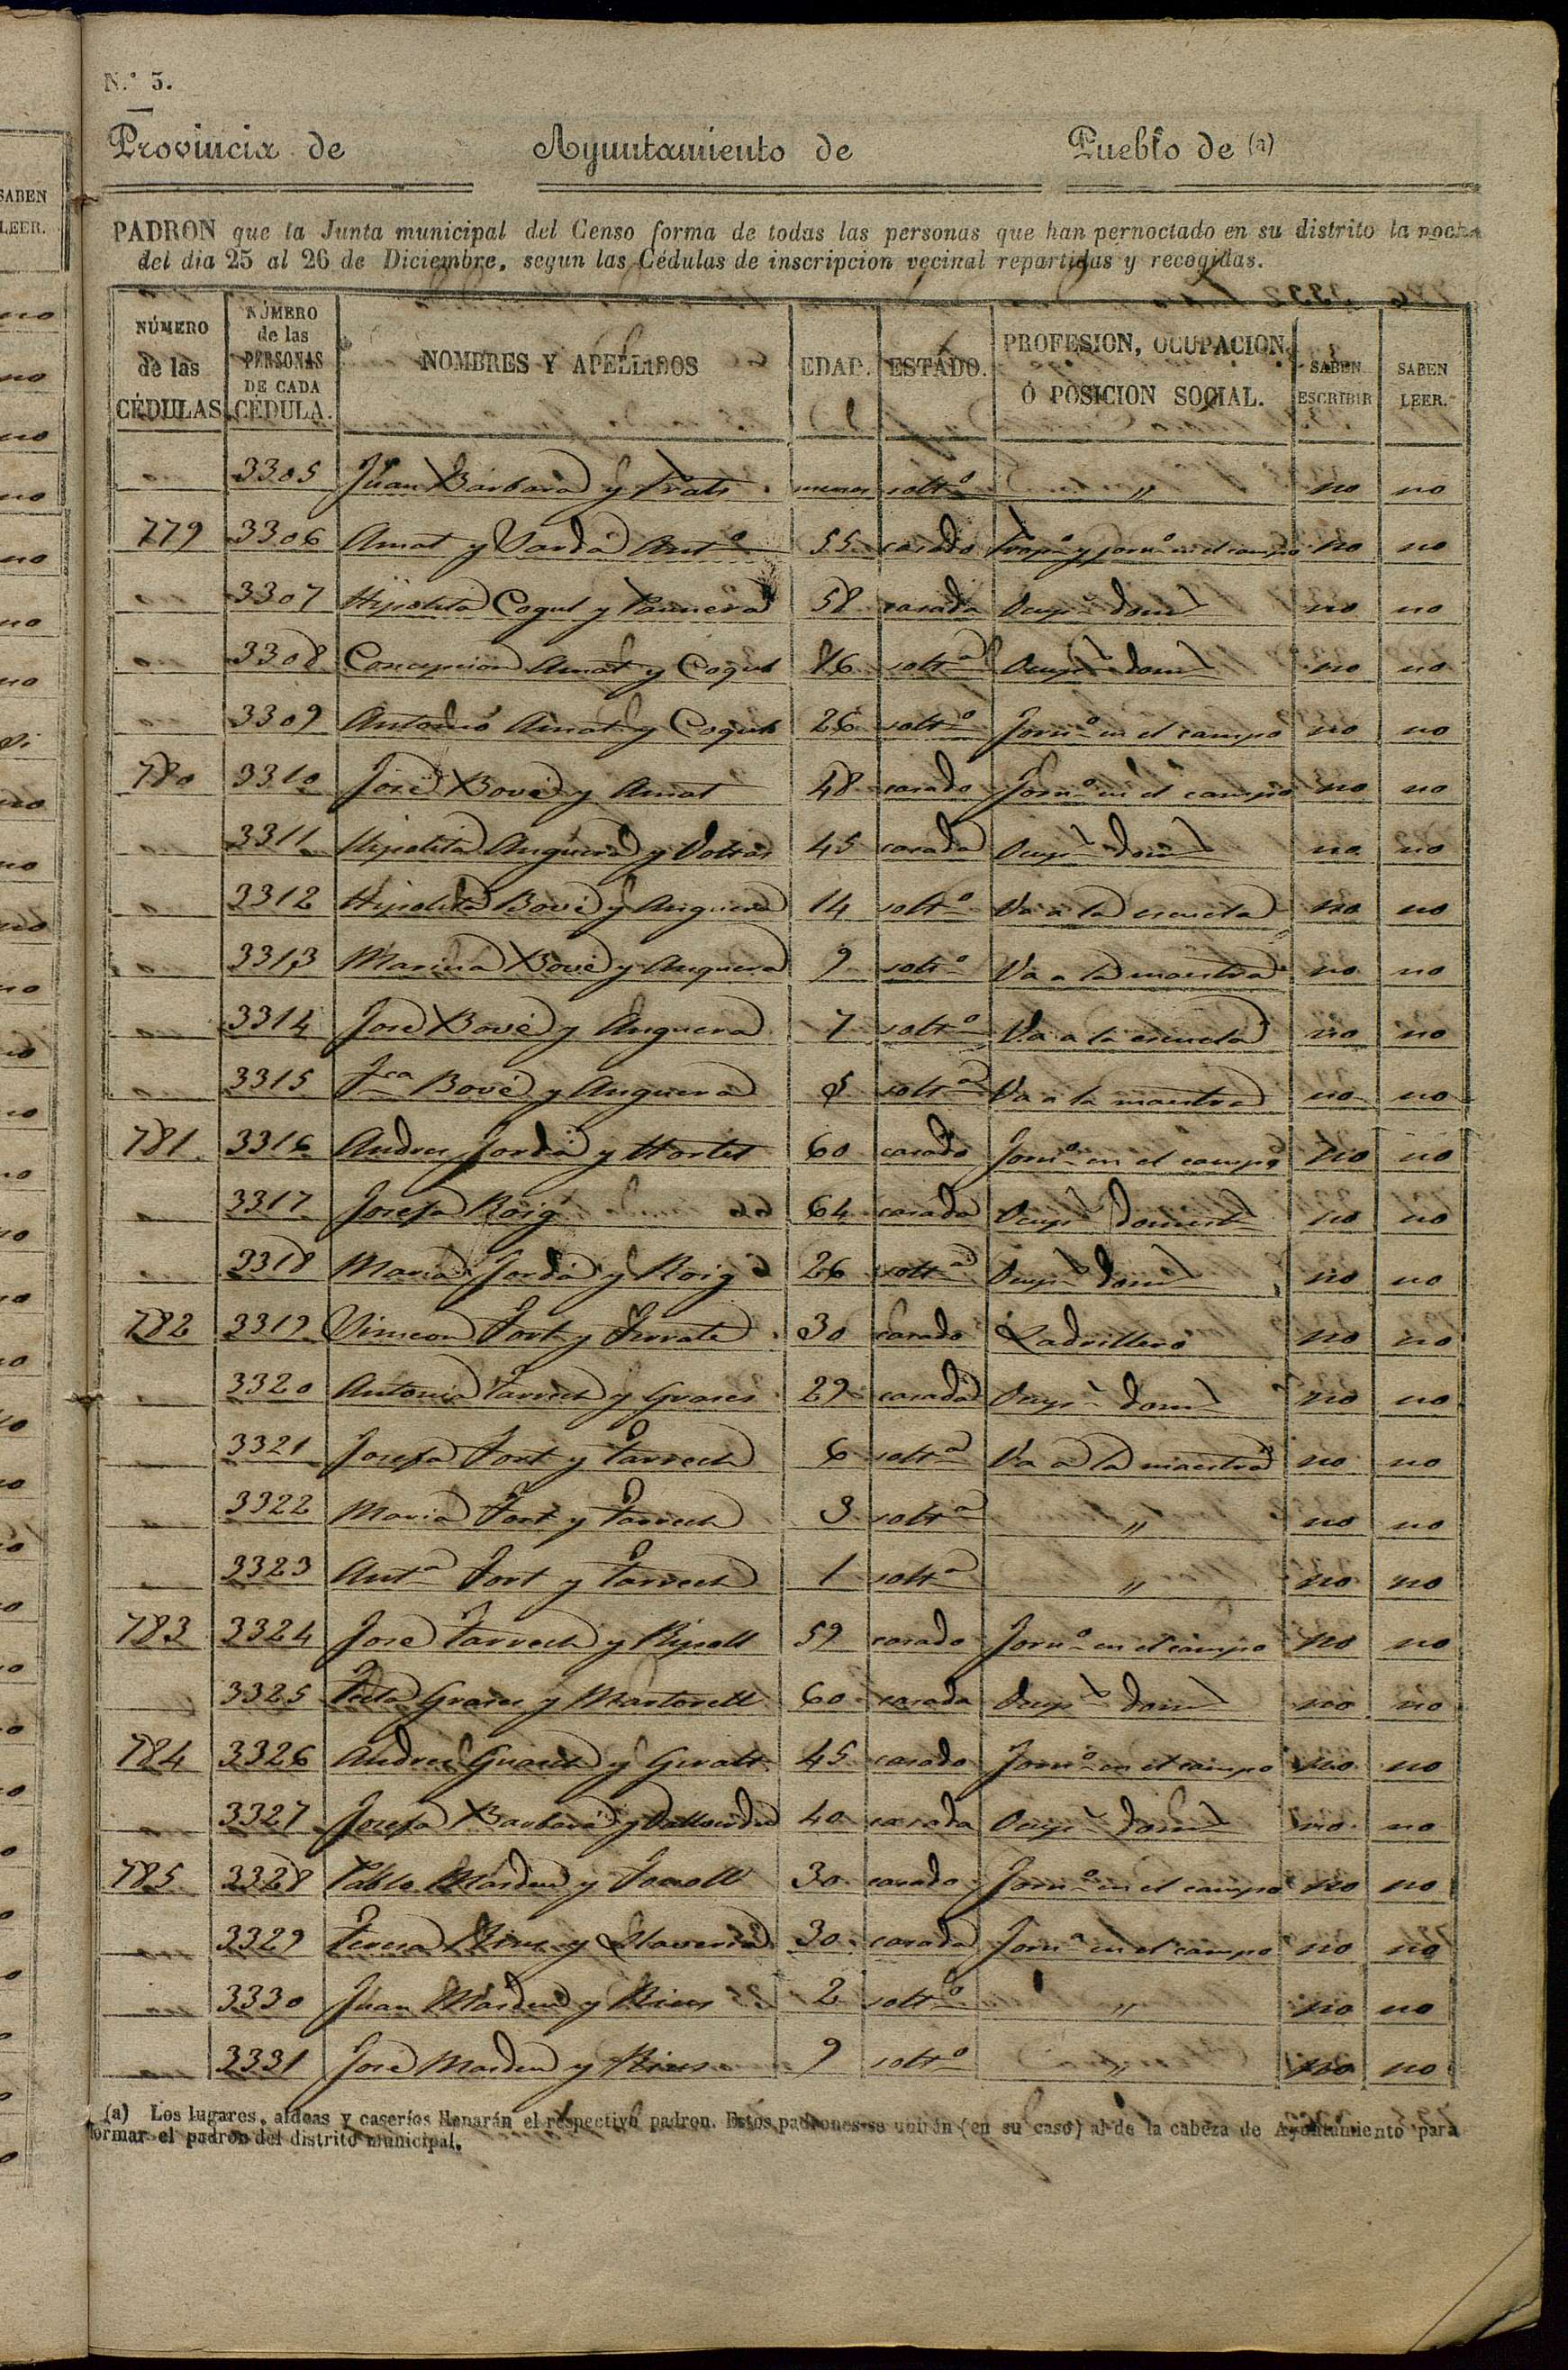 N.º 3.
Provincia de Ayuntamiento de Pueblo de (a)
PADRON que la Junta municipal del Censo forma de todas las personas que han pernoctado en su distrito la noche
del dia 25 al 26 de Diciembre, segun las Cédulas de inscripcion vecinal repartidas y recogidas.
NÚMERO de las CÉDULAS NÚMERO de las PERSONAS DE CADA CÉDULA. NOMBRES Y APELLIDOS EDAD. ESTADO. PROFESION, OCUPACION, Ó POSICION SOCIAL. SABEN ESCRIBIR SABEN LEER.
3305 Juan Barbará y Prats menor solt.º " no no
779 3306 Amat y Jordá Ant.º 55 casado Prop.º y jorn.º en el campo no no
3307 Hipolita Cogul y 58 casada Ocup.s dom.s no no
3308 Concepcion Amat y Cogul 16 solt.a Ocup.s dom.s no no
3309 Antonio Amat y Cogul 26 solt.º Jorn.º en el campo no no
780 3310 José Bové y Amat 48 casado Jorn.º en el campo no no
3311 Hipolita Anguera y 45 casada Ocup.s dom.s no no
3312 Hipolito Bové y Anguera 14 solt.º Va a la escuela no no
3313 Marina Bové y Anguera 9 solt.º Va a la maestra no no
3314 José Bové y Anguera 7 solt.º Va a la escuela no no
3315 Fca Bové y Anguera 5 solt.a Va a la maestra no no
781 3316 Andres Jordá y Hortet 60 casado Jorn.º en el campo no no
3317 Josefa Roig 64 casada Ocup.s domest.s no no
3318 Maria Jordá y Roig 26 solt.a Ocup.s dom.s no no
782 3319 Simeon Fort y Ferrate 30 casado Ladrillero no no
3320 Antonia Tarrech y Grases 29 casada Ocup.s dom.s no no
3321 Josefa Fort y Tarrech 6 solt.a Va a la maestra no no
3322 Maria Fort y Tarrech 3 solt.a " no no
3323 Ant.a Fort y Tarrech 1 solt.a " no no
783 3324 José Tarrech y Ripoll 59 casado Jorn.º en el campo no no
3325 Tecla Grases y Martorell 60 casada Ocup.s dom.s no no
784 3326 Andres Guasch y Giralt 45 casado Jorn.º en el campo no no
3327 Josefa Barbará y 40 casada Ocup.s dom.s no no
785 3328 Pablo Mardeu y 30 casado Jorn.º en el campo no no
3329 Teresa Rius y Llaveria 30 casada Jorn.a en el campo no no
3330 Juan Mardeu y Rius 2 solt.º " no no
3331 José Mardeu y Rius 9 solt.º " no no
(a) Los lugares, aldeas y caseríos llenarán el respectivo padron. Estos padrones se unirán (en su caso) al de la cabeza de Ayuntamiento para
formar el padron del distrito municipal.